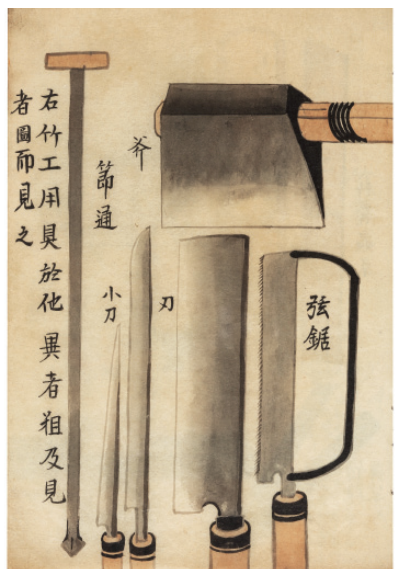 弦鋸
刃
斧
小刀
節通
右竹工用具於他異者粗及見
者圖而見之